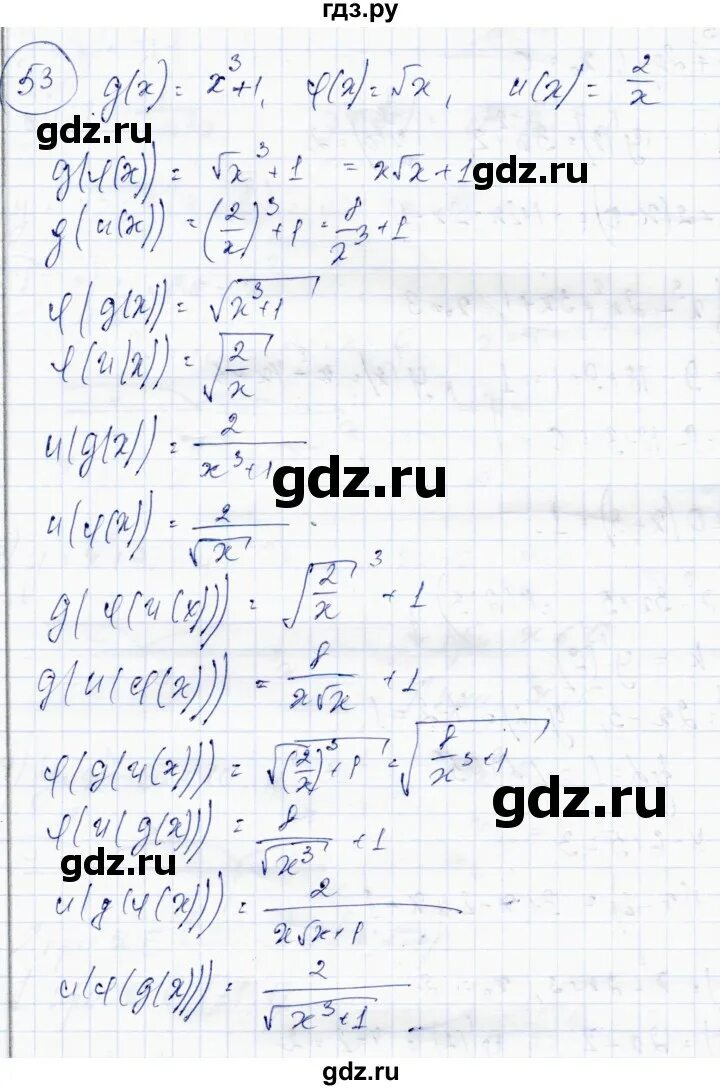 гдз.ру
53 g(x) = x³+1, φ(x) = √x, u(x) = 2/x
gdz.ru
g(φ(x)) = √x³ + 1 = x√x + 1
gdz.ru
g(u(x)) = (2/x)³ + 1 = 8/x³ + 1
φ(g(x)) = √(x³+1)
φ(u(x)) = √(2/x)
u(g(x)) = 2/(x³+1)
gdz.ru
u(φ(x)) = 2/√x
g(φ(u(x))) = √(2/x)³ + 1
g(u(φ(x))) = 8/(x√x) + 1
φ(g(u(x))) = √((2/x)³+1) = √(8/x³+1)
gdz.ru
φ(u(g(x))) = 8/√x³ + 1
gdz.ru
u(g(φ(x))) = 2/(x√x+1)
u(φ(g(x))) = 2/√(x³+1)
gdz.ru